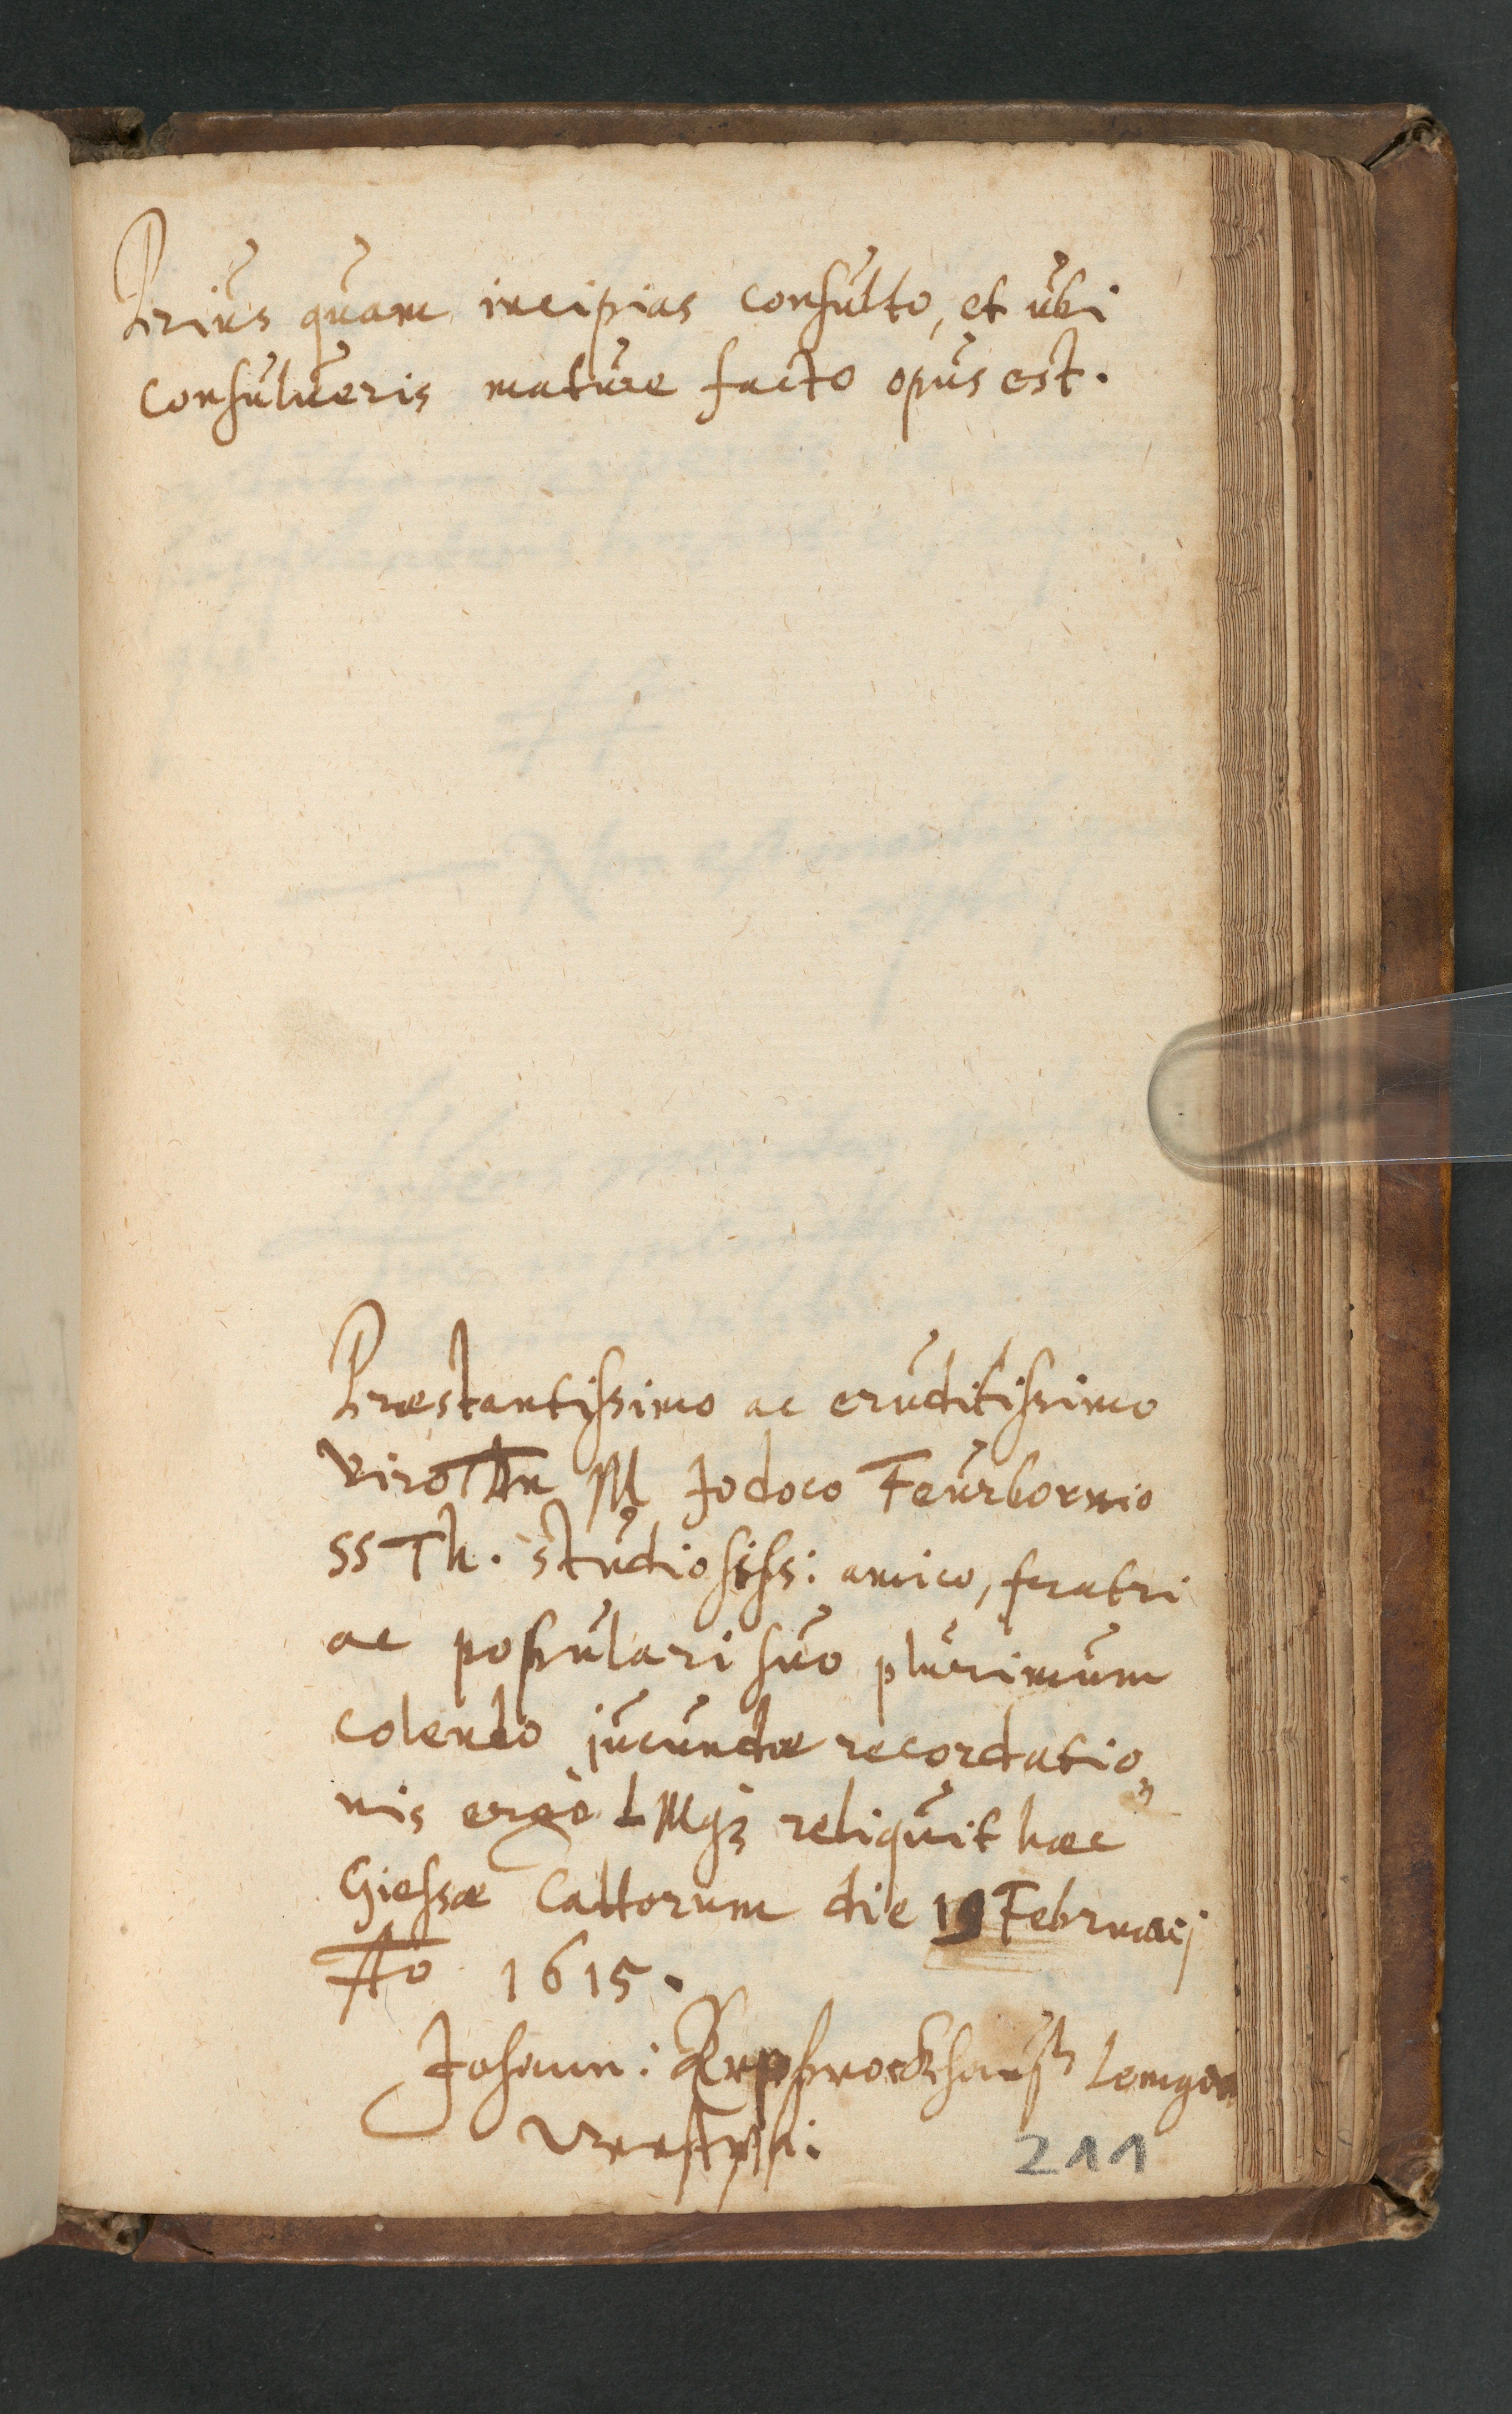 Prius quam incipias consulto, et ubi
consulueris mature facto opus est.
Præstantissimo ac eruditissimo
viro Dn M Jodoco Feurbornio
SS Th. studiosiss: amico, fratri
ac populari suo plurimum
colendo jucundæ recordatio„
nis ergò LMq3 reliquit hæc
Giessæ Cattorum die 19 Februarij
Ao 1615.
Johann: Lemgo
Westph:
211